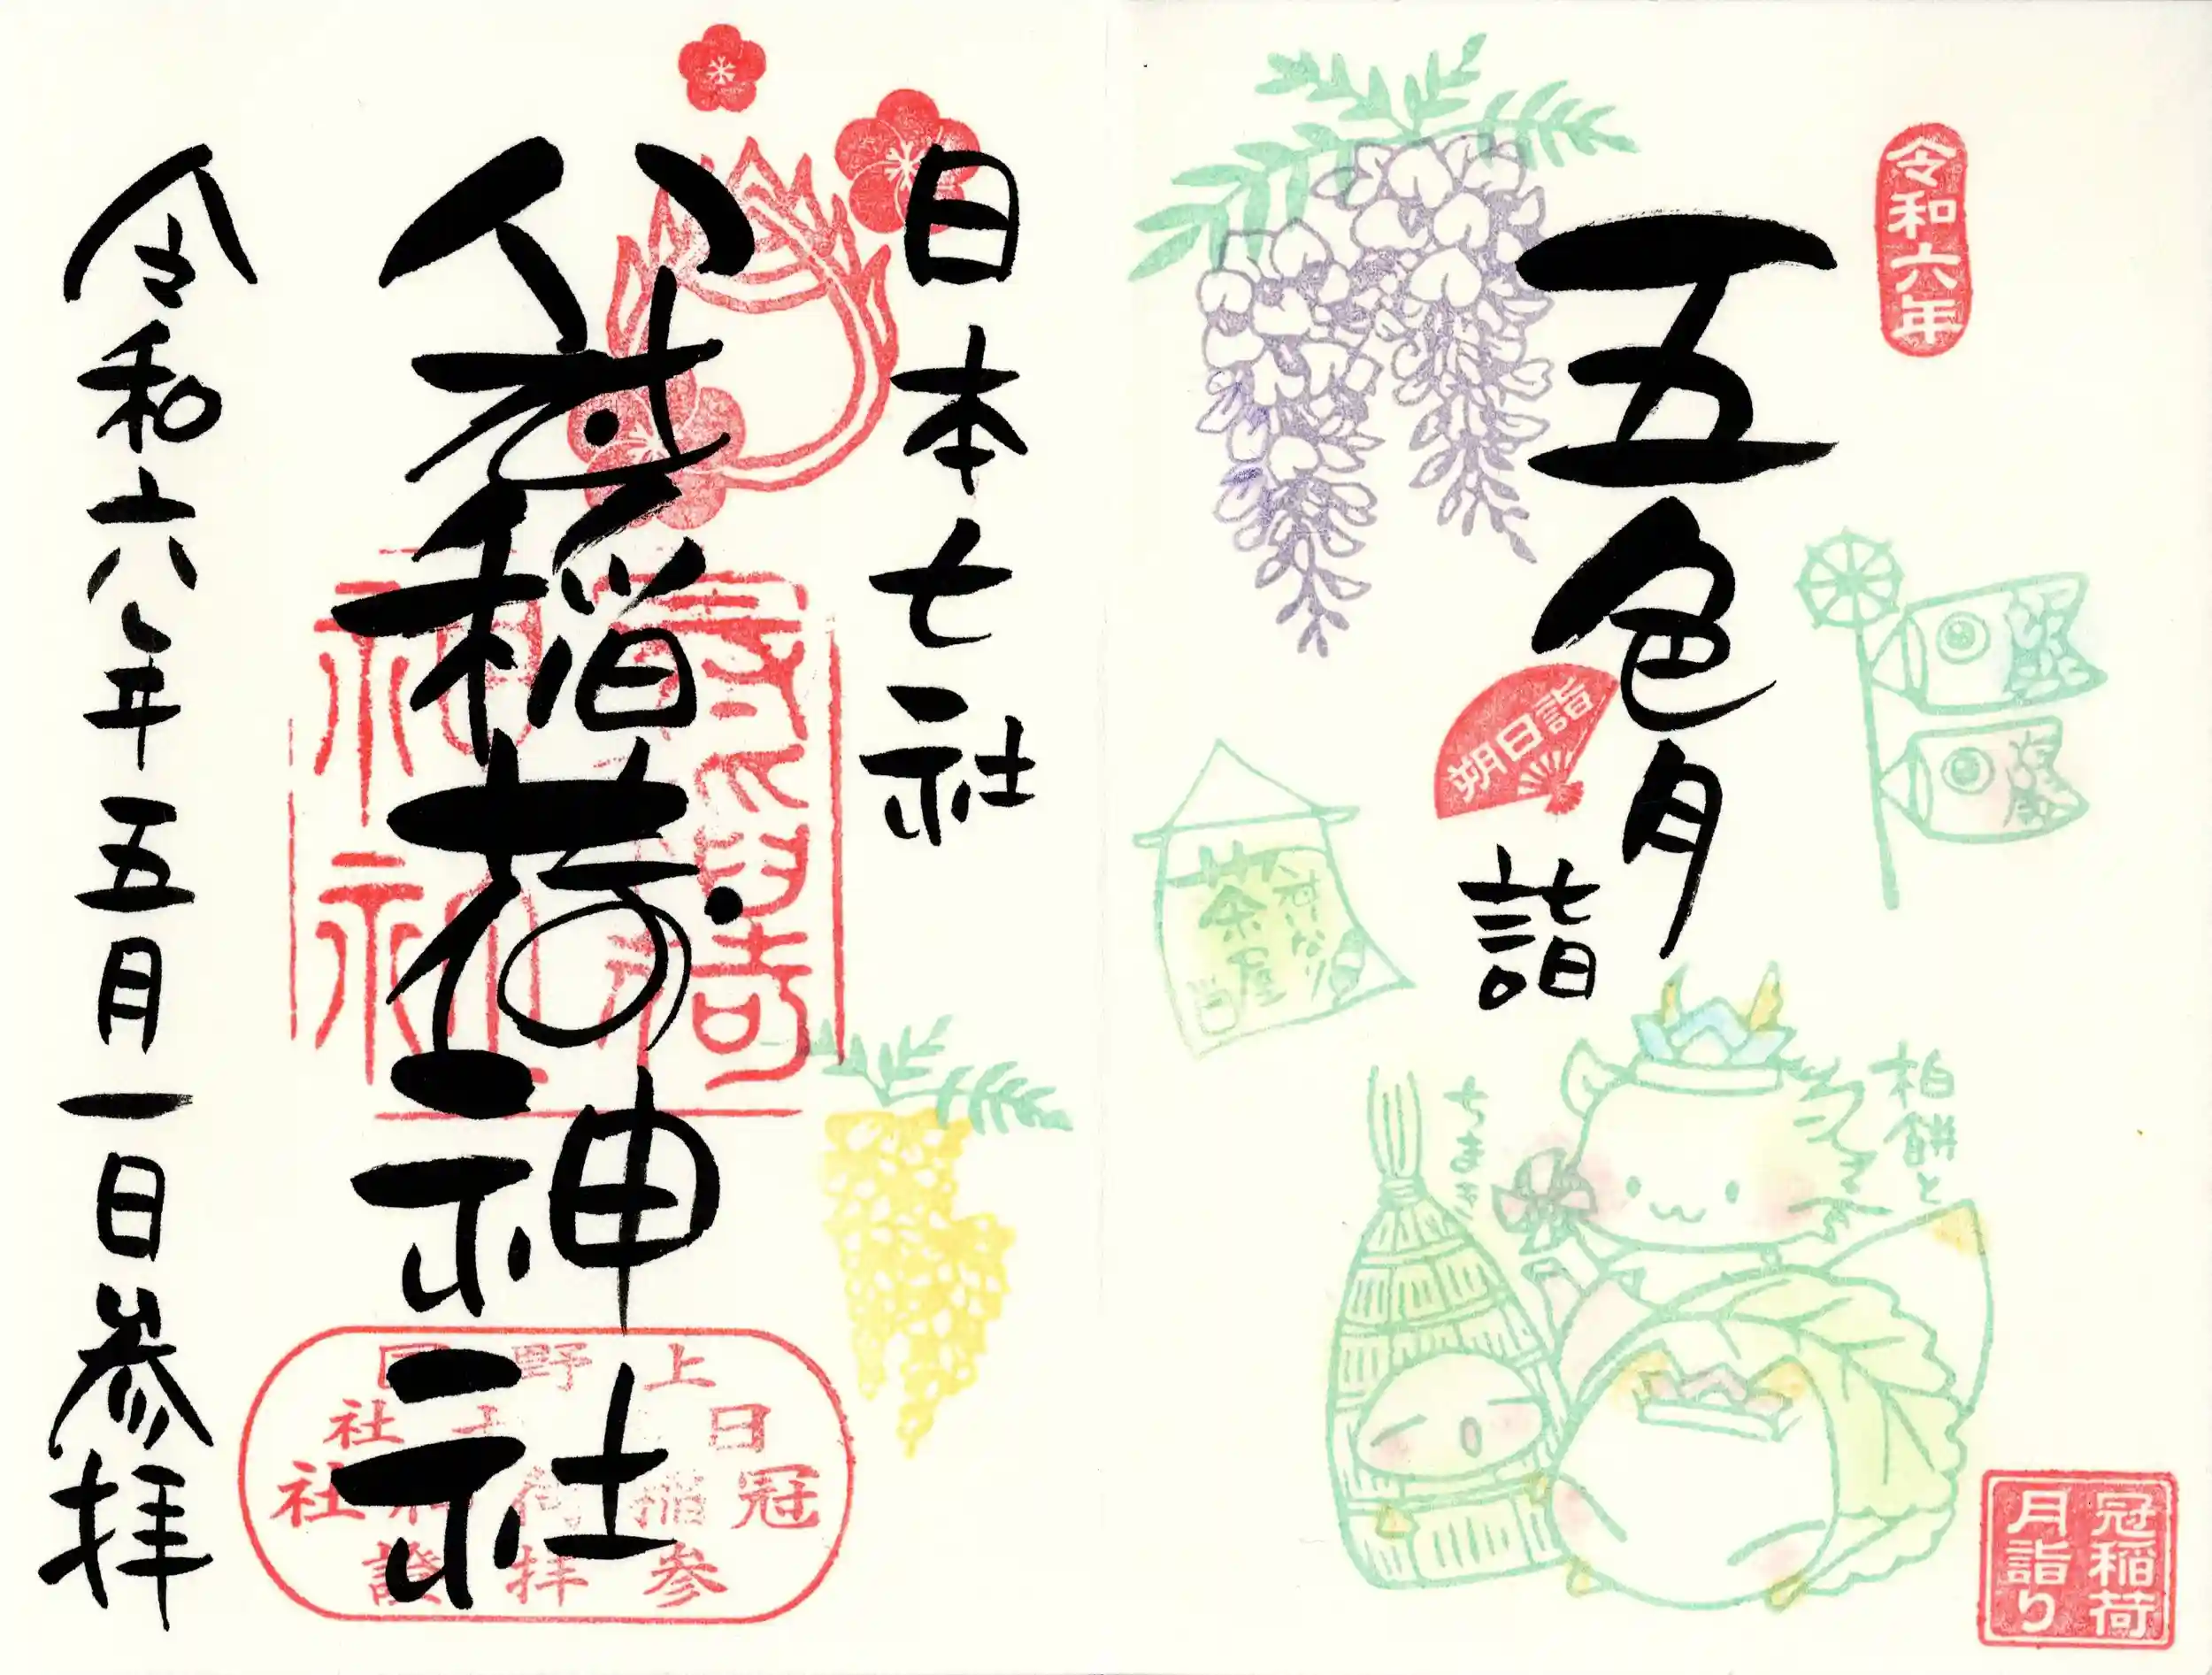 令和六年
五色月
詣
朔日詣
茶屋
柏餅と
ちまき
冠稲荷
月詣り
日本七社
冠稲荷神社
上野国
日本七社
冠稲荷神社
参拝證
令和六年五月一日参拝